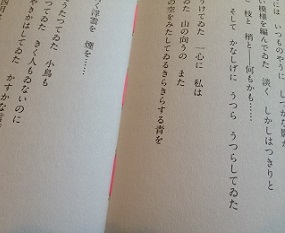 には いつものやうに しづかな影が
い模様を編んでゐた 淡く しかしはつきりと
と 枝と 梢と――何もかも……
そして かなしげに うつら うつらしてゐた
うけてゐた 一心に 私は
ゐた 山の向うの また
の空をみたしてゐるきらきらする青を
く浮雲を 煙を……
うたつてゐた 小鳥も
つてゐた きく人もゐないのに
やきかはしてゐた かすかな言